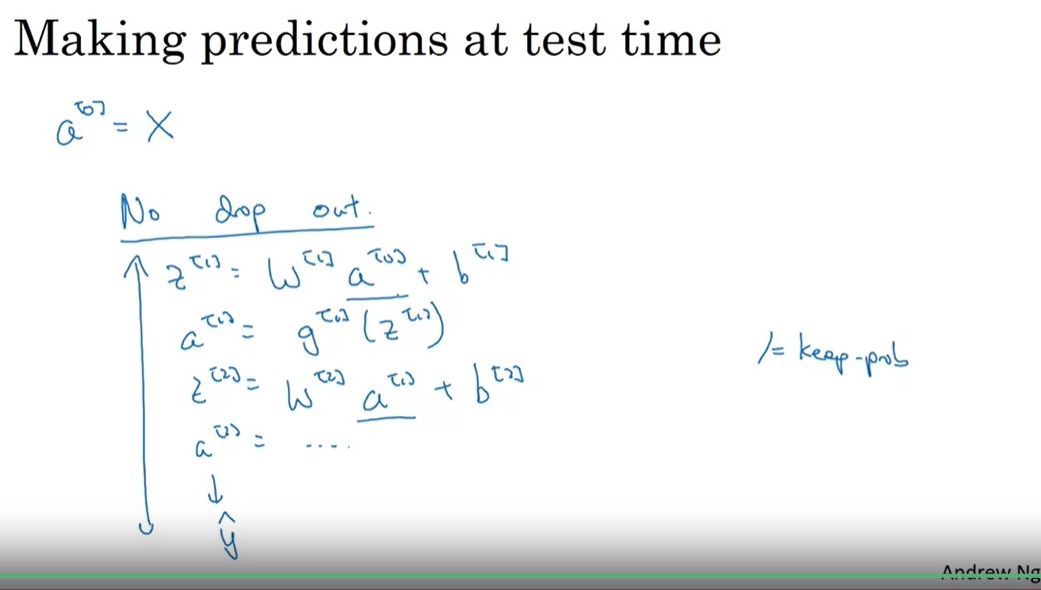 Making predictions at test time
a^[0] = X
No drop out.
z^[1] = W^[1] a^[0] + b^[1]
a^[1] = g^[1] (z^[1])
z^[2] = W^[2] a^[1] + b^[2]
a^[2] = ....
↓
ŷ
/= keep-prob
Andrew Ng